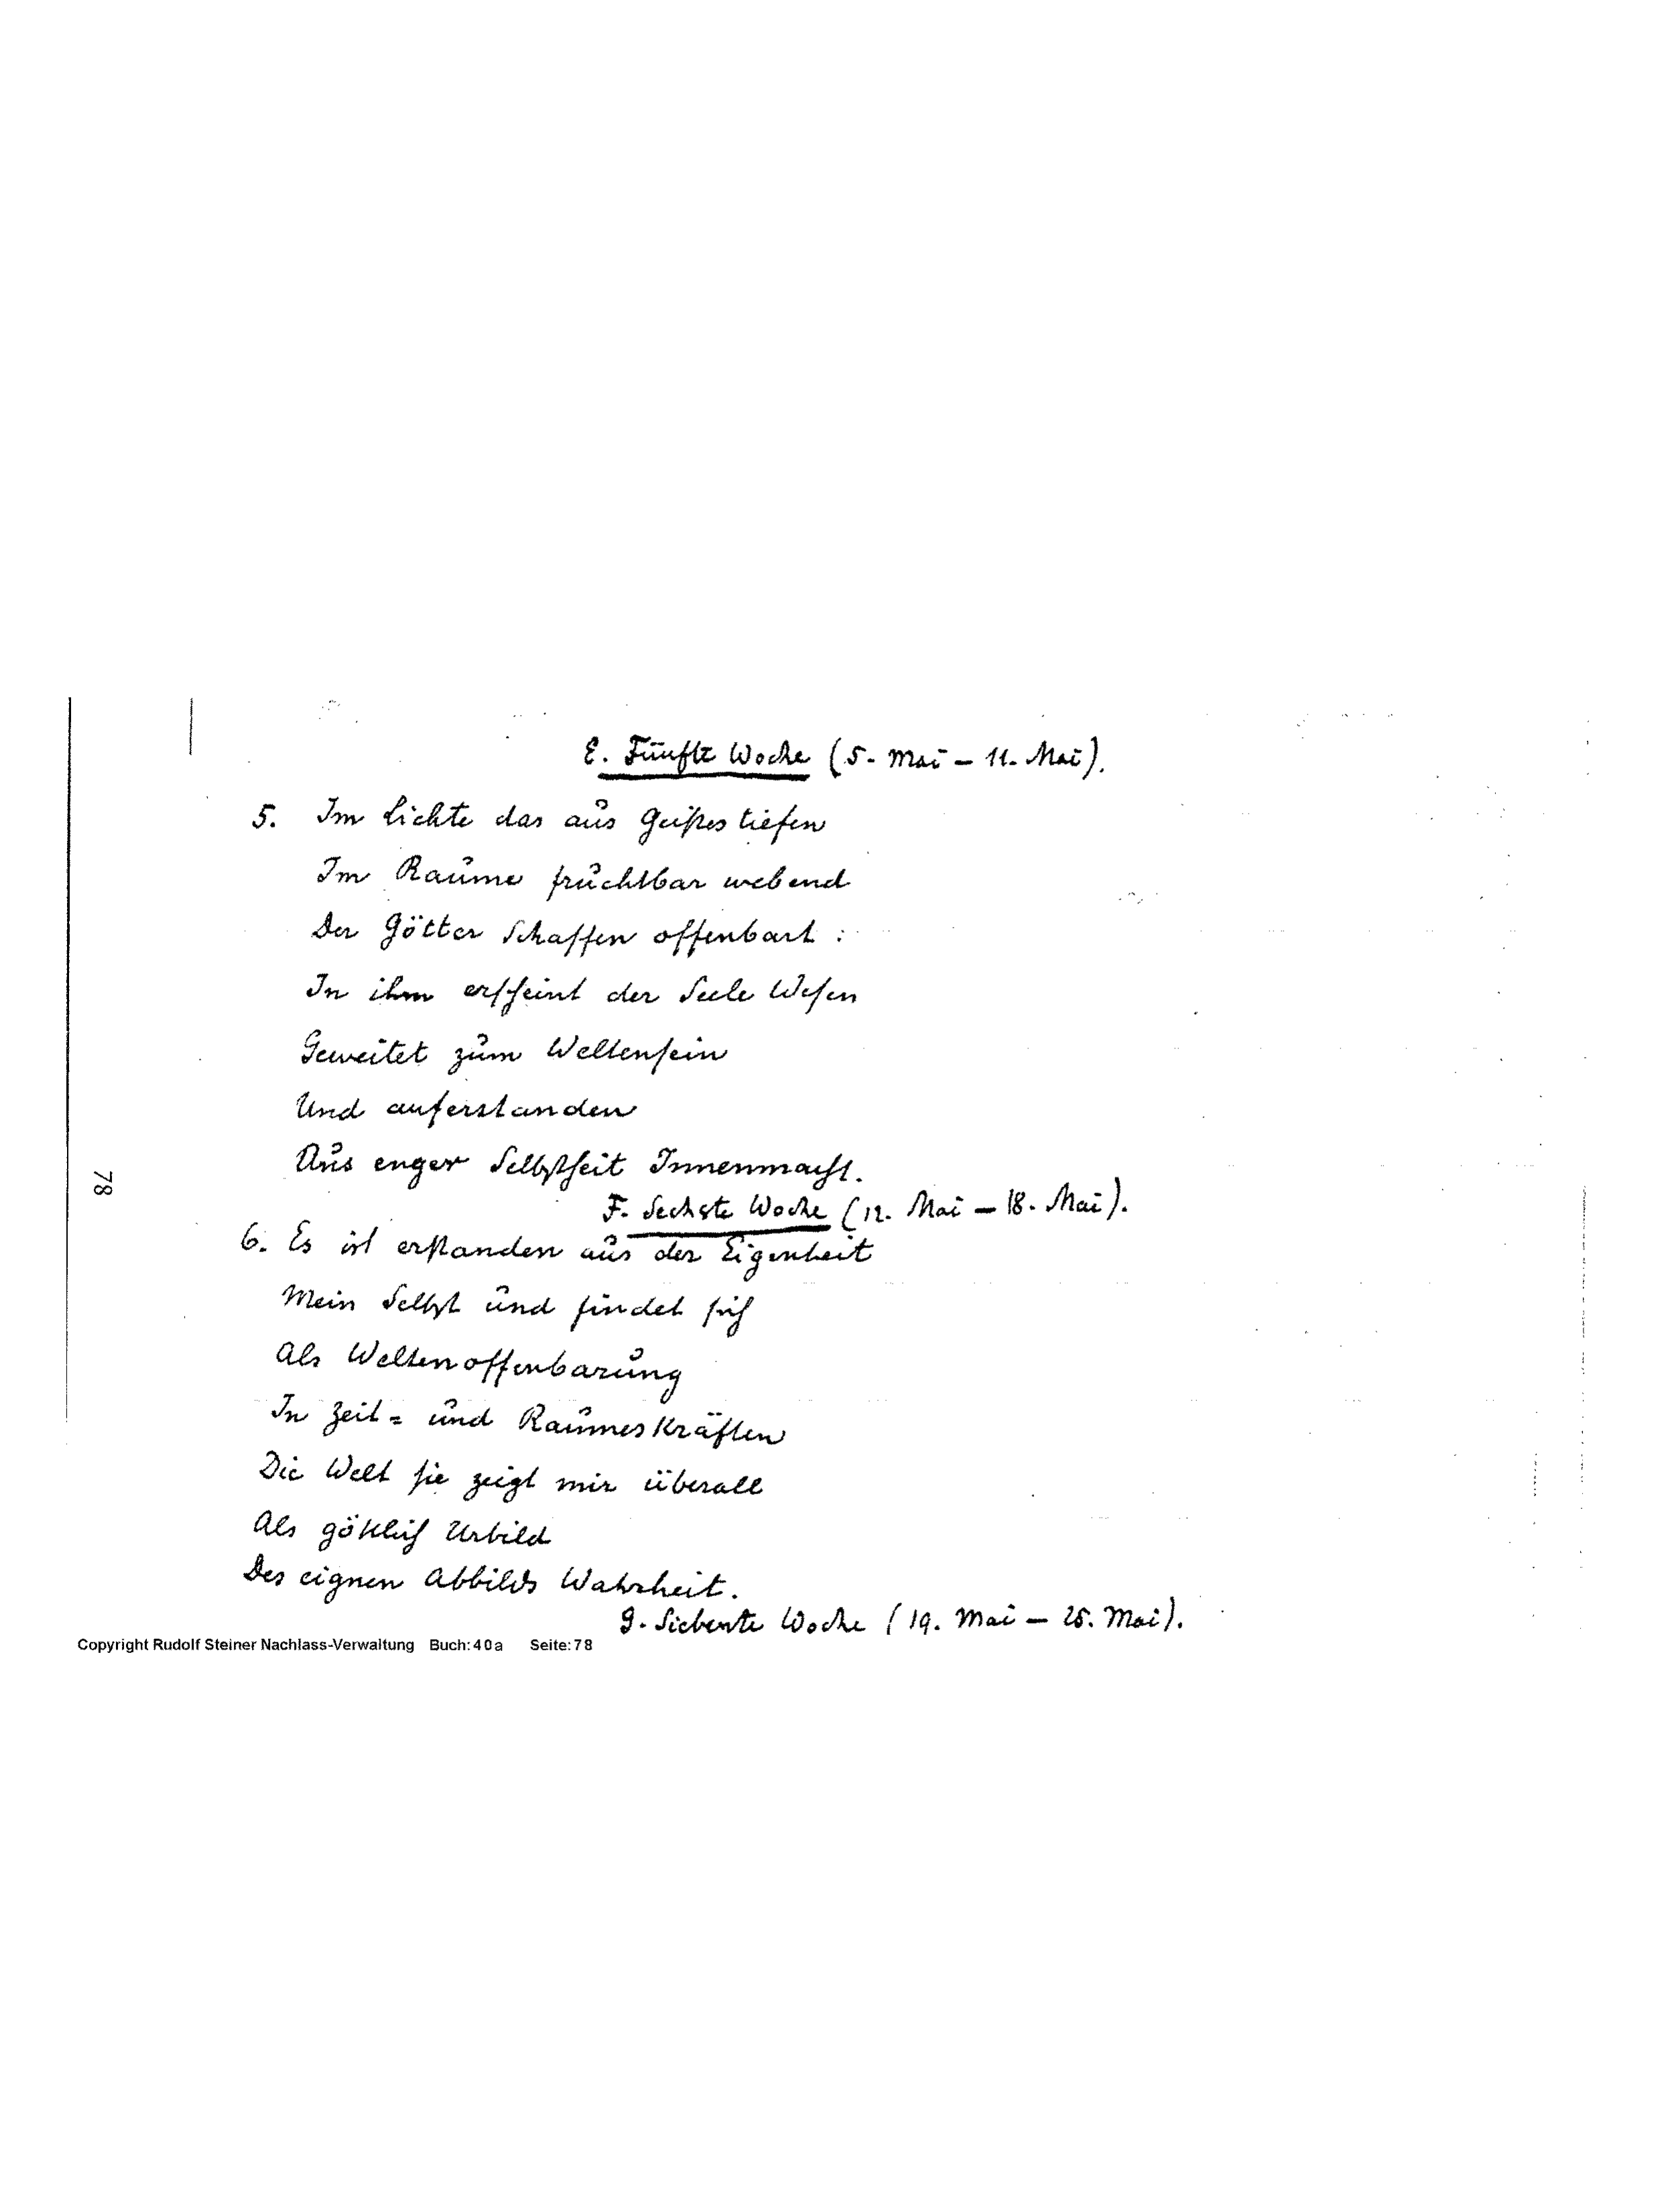 E. Fünfte Woche (5. Mai – 11. Mai).
5. Im Lichte das aus Geistestiefen
Im Raume fruchtbar webend
Der Götter Schaffen offenbart :
In ihm erscheint der Seele Wesen
Geweitet zum Weltensein
Und auferstanden
Aus enger Selbstheit Innenmacht.
F. Sechste Woche (12. Mai – 18. Mai).
6. Es ist erstanden aus der Eigenheit
Mein Selbst und findet sich
Als Weltenoffenbarung
In Zeit= und Raumeskräften
Die Welt sie zeigt mir überall
Als göttlich Urbild
Des eignen Abbilds Wahrheit.
G. Siebente Woche (19. Mai – 25. Mai).
78
Copyright Rudolf Steiner Nachlass-Verwaltung Buch:40a Seite:78